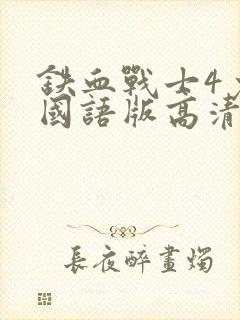 鉄血戰士4
國語版高清
長夜醉畫燭